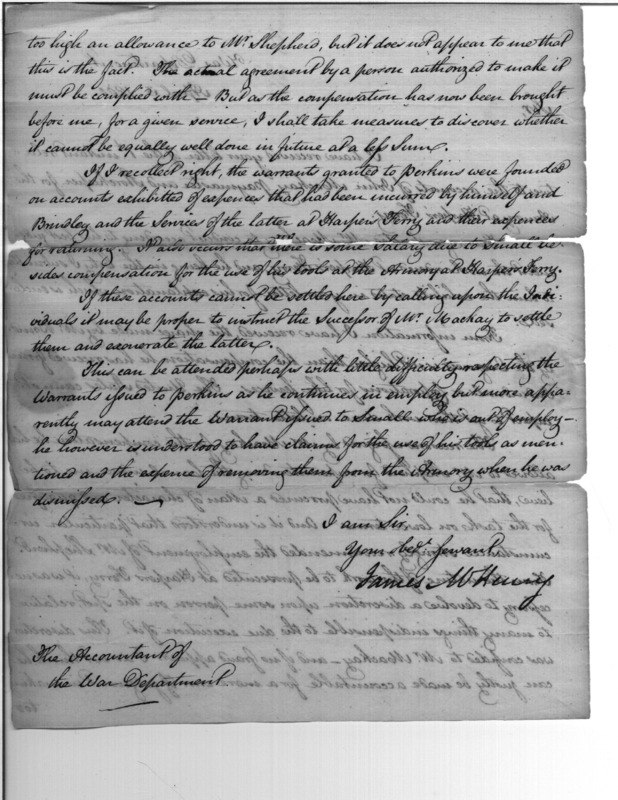 too high an allowance to Mr. Shepherd, but it does not appear to me that
this is the fact. The actual agreement by a person authorized to make it
must be complied with – But as the compensation has now been brought
before me, for a given service, I shall take measures to discover whether
it cannot be equally well done in future at a less Sum.
If I recollect right, the warrants granted to Perkins were founded
on accounts exhibited of expences that had been incurred by himself and
Brindley and the Services of the latter at Harpers Ferry and their expences
for returning. It also occurs that there is some Salary due to Small be-
sides compensation for the use of his tools at the Armory at Harpers Ferry.
If these accounts cannot be settled here by calling upon the Indi-
viduals it may be proper to instruct the Successor of Mr. Mackay to settle
them and exonerate the latter.
This can be attended perhaps with little difficulty respecting the
Warrants issued to Perkins as he continues in employ, but more appa-
rently may attend the Warrant issued to Small who is out of employ –
he however is understood to have claims for the use of his tools as men-
tioned and the expence of removing them from the Armory when he was
dismissed. –
I am Sir,
Your obedt. Servant
James McHenry
The Accountant of
the War Department